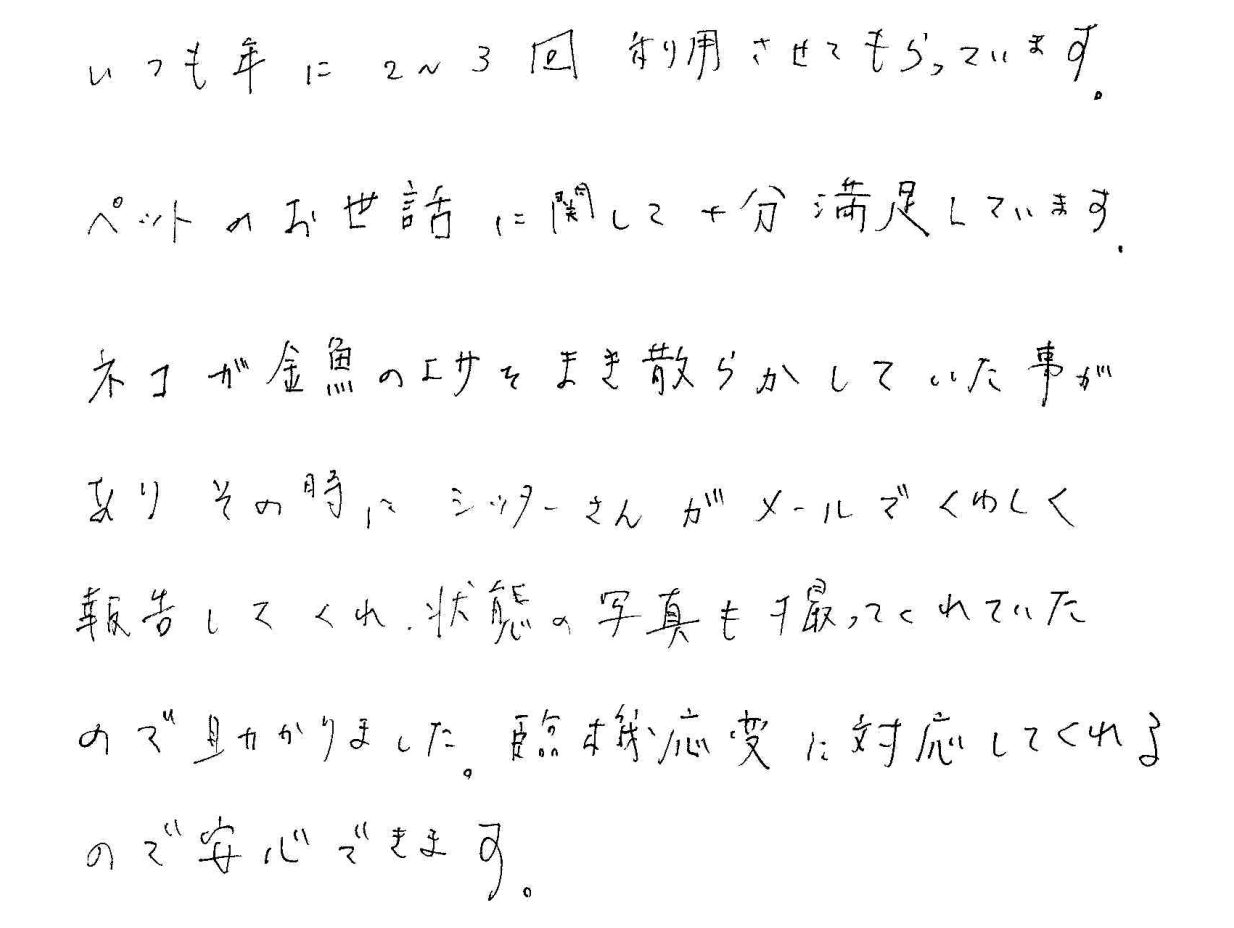 いつも年に2~3回 利用させてもらっています。
ペットのお世話に関して十分満足しています.
ネコが金魚のエサをまき散らかしていた事が
ありその時に シッターさんがメールでくわしく
報告してくれ.状態の写真も撮ってくれていた
ので助かりました。臨機応変に対応してくれる
ので安心できます。